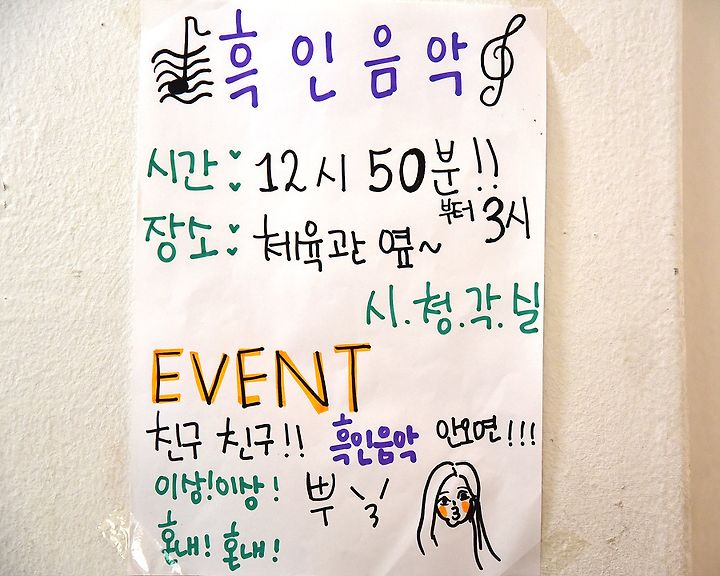 흑인음악
시간: 12시 50분!!
부터 3시
장소: 체육관 옆~
시.청.각.실
EVENT
친구 친구!! 흑인음악 안오면!!!
이상!이상! 뿌
혼내! 혼내!